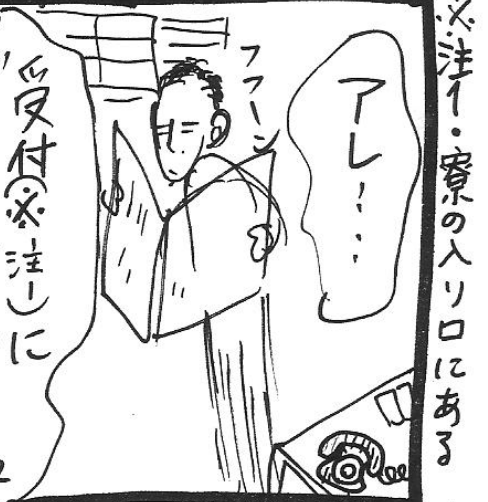 ※注1・寮の入り口にある
アレ…‥
フフーン
受付(※注1)に